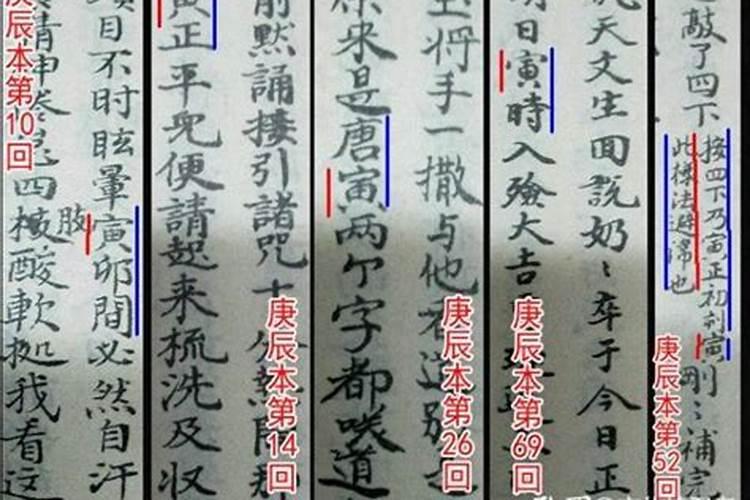 敲了四下
按四下乃寅正初刻寅
此樣法避諱也
剛〻補完
庚辰本第52回
天文生回說奶〻卒于今日正
日寅時入殮大吉
庚辰本第69回
將手一撒与他
庚辰本第26回
來是唐寅两个字都咲道
前默誦接引諸咒十
庚辰本第14回
寅正平兒便請起来梳洗及收
項目不时眩暈寅卯間必然自汗
四肢酸軟
我看这
庚辰本第10回